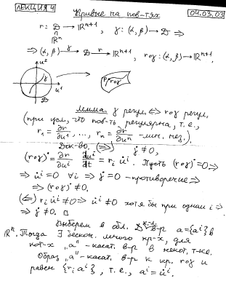 ЛЕКЦИЯ 4
Кривые на пов-тях
04.03.03
r: D → ℝⁿ⁺¹, γ: (α,β) → D ⇒
ℝⁿ
⇒ (α,β) →γ D →r ℝⁿ⁺¹, r∘γ: (α,β) → ℝⁿ⁺¹
u²
u¹
Лемма γ регул. ⇔ r∘γ регул.
(при усл., что пов-ть регулярна, т.е.,
r₁ = ∂r/∂u¹, ..., rₙ = ∂r/∂uⁿ - лин. нез.)
Док-во. (⇒) γ̇ ≠ 0,
(r∘γ)˙ = ∂r/∂uⁱ duⁱ/dt = rᵢ u̇ⁱ. Пусть (r∘γ)˙ = 0 ⇒
⇒ u̇ⁱ = 0 ∀i ⇒ γ̇ = 0 - противоречие ⇒
⇒ (r∘γ)˙ ≠ 0.
(⇐) rᵢ u̇ⁱ ≠ 0 ⇒ u̇ⁱ ≠ 0 хотя бы при одном i ⇒
⇒ γ̇ ≠ 0.
Выберем в обл. D в-р a = {aⁱ} в
ℝⁿ. Тогда ∃ бескон. много кр-х, для
кот-х "a" - касат. в-р в некот. т-ке.
Образ "a" - касат. в-р к кр. r∘γ и
равен {rᵢ aⁱ}, т.е., aⁱ = u̇ⁱ.